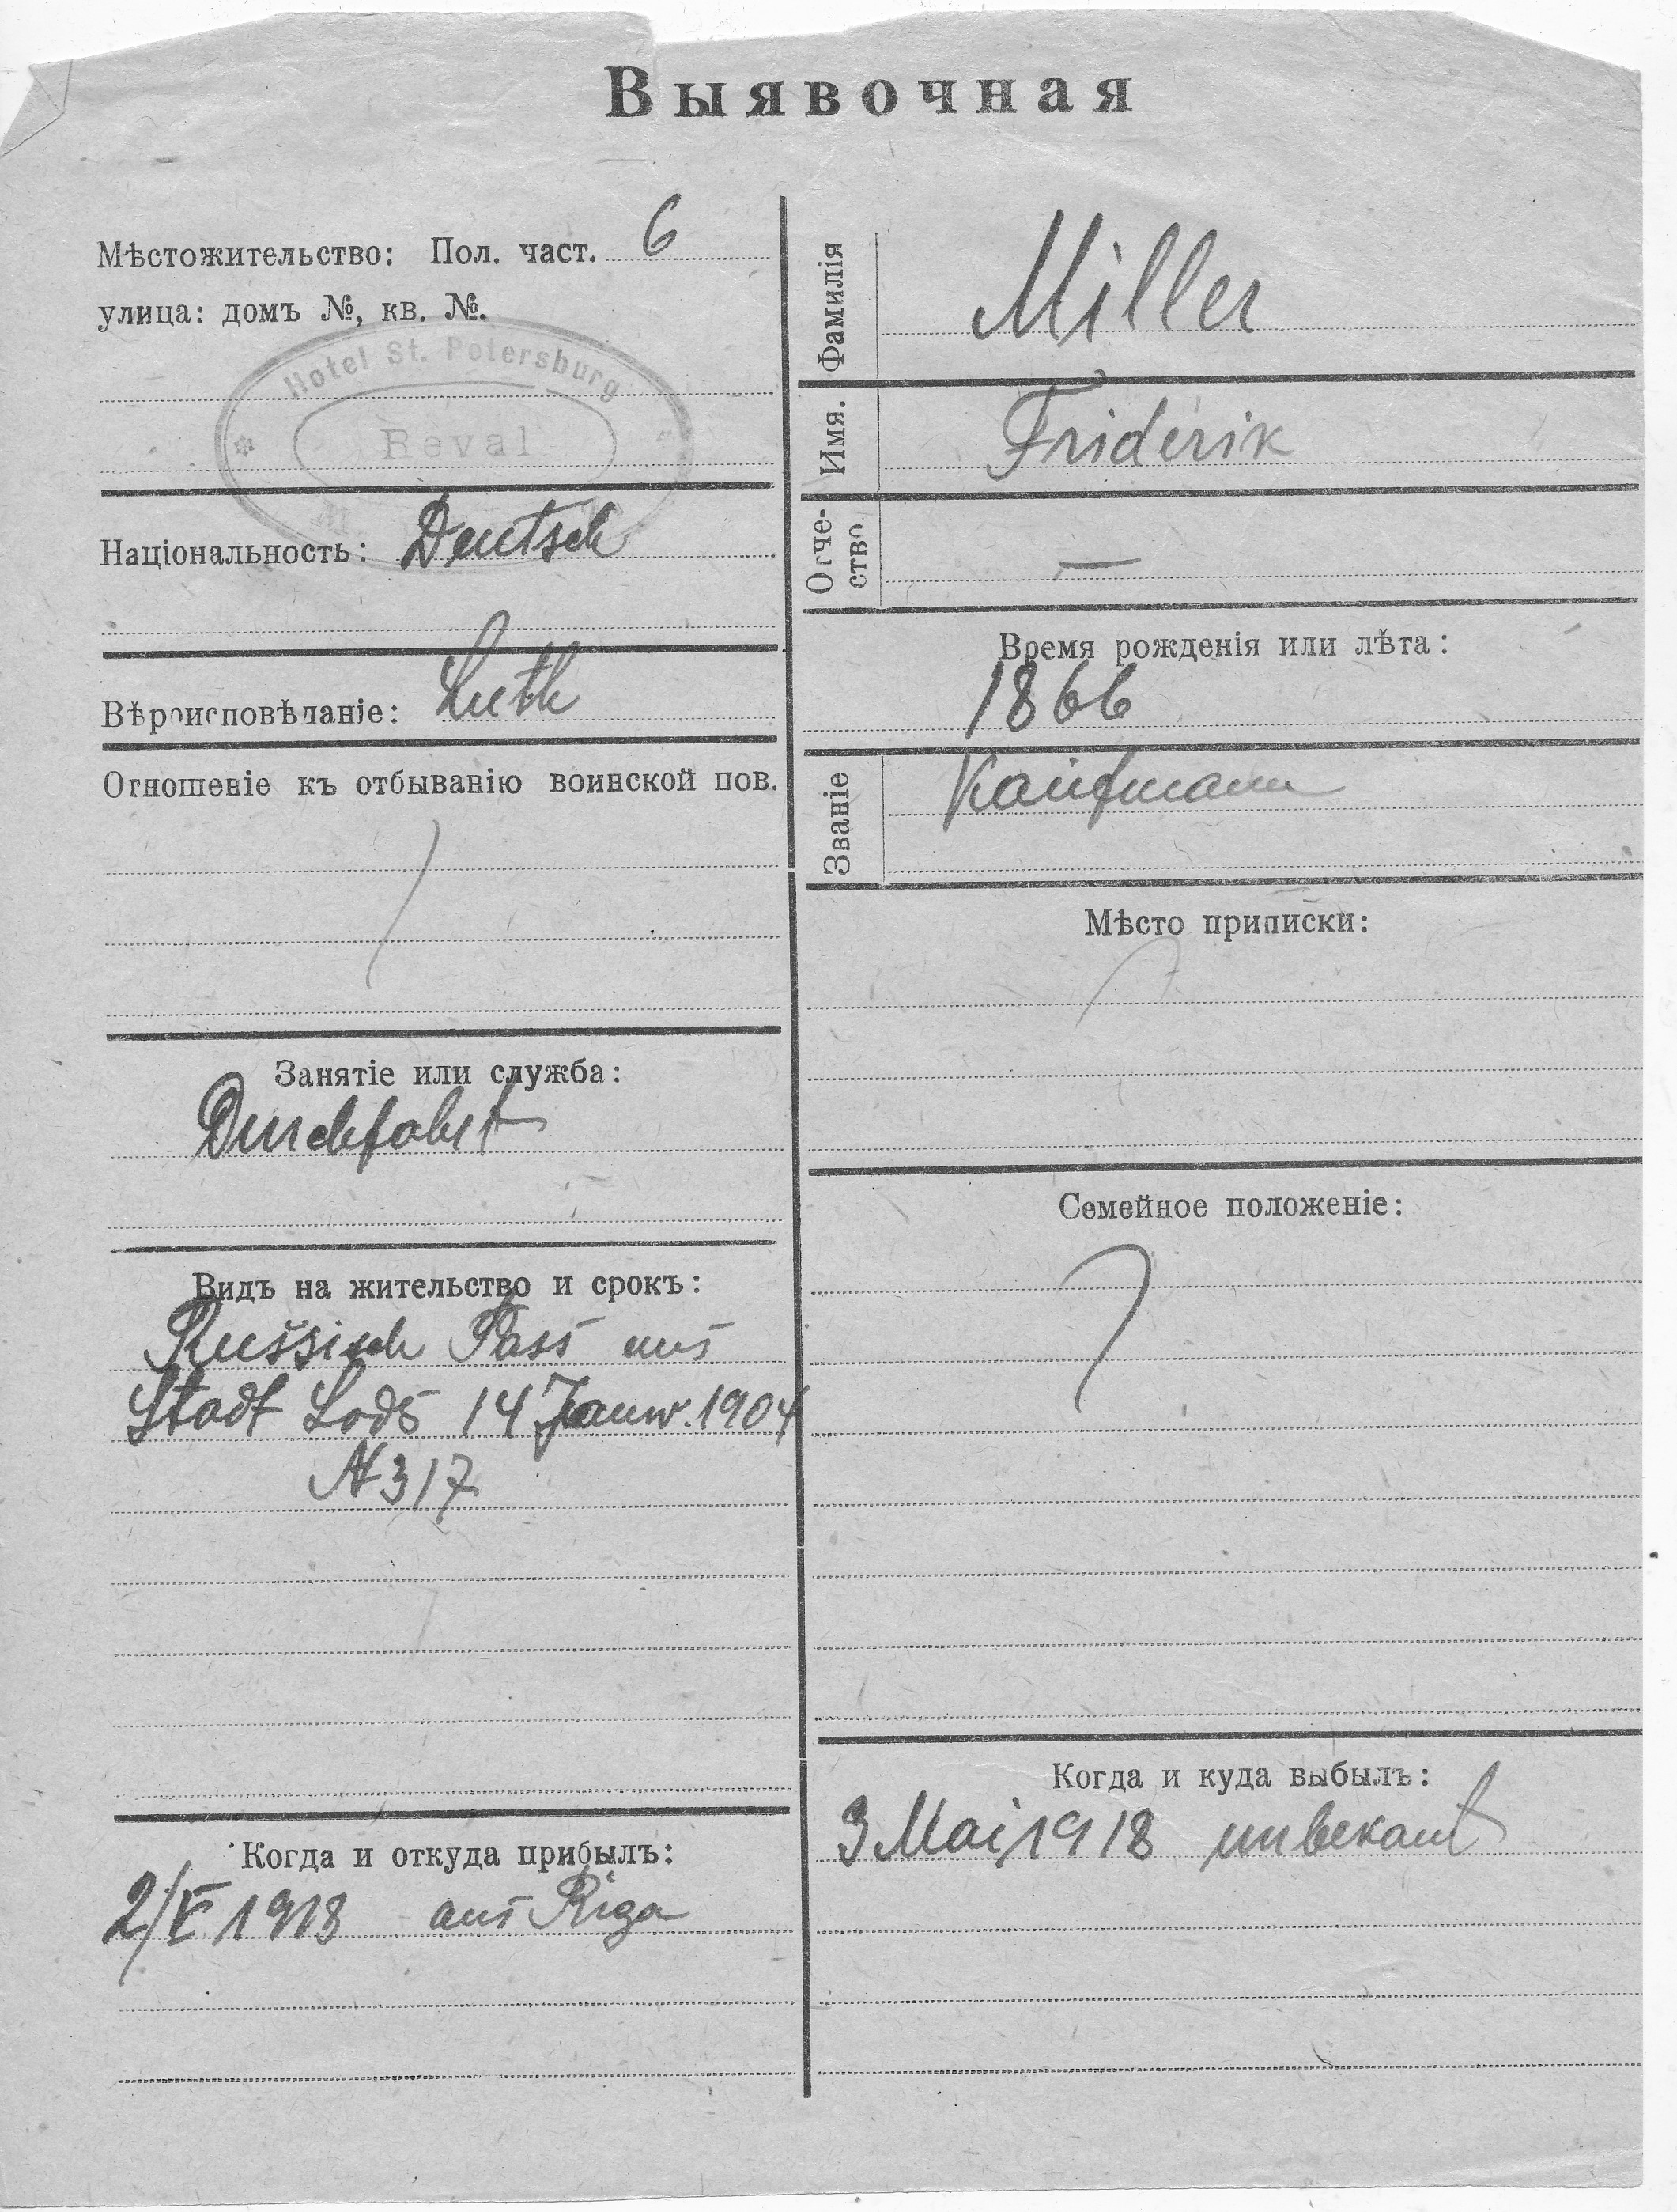 Выявочная
Мѣстожительство: Пол. част. 6
улица: домъ №, кв. №.
Hotel St. Petersburg
Reval
Національность: Deutsch
Вѣроисповѣданіе: Luth
Отношеніе къ отбыванію воинской пов.
Занятіе или служба:
Durchfahrt
Видъ на жительство и срокъ:
Russisch Pass aus
Stadt Lods 14 Januar. 1904
N 317
Когда и откуда прибылъ:
2/V 1918 aus Riga
Фамилія Miller
Имя. Friderik
Отче-
ство. —
Время рожденія или лѣта:
1866
Званіе Kaufmann
Мѣсто приписки:
Семейное положеніе:
Когда и куда выбылъ:
3 Mai 1918 unbekant